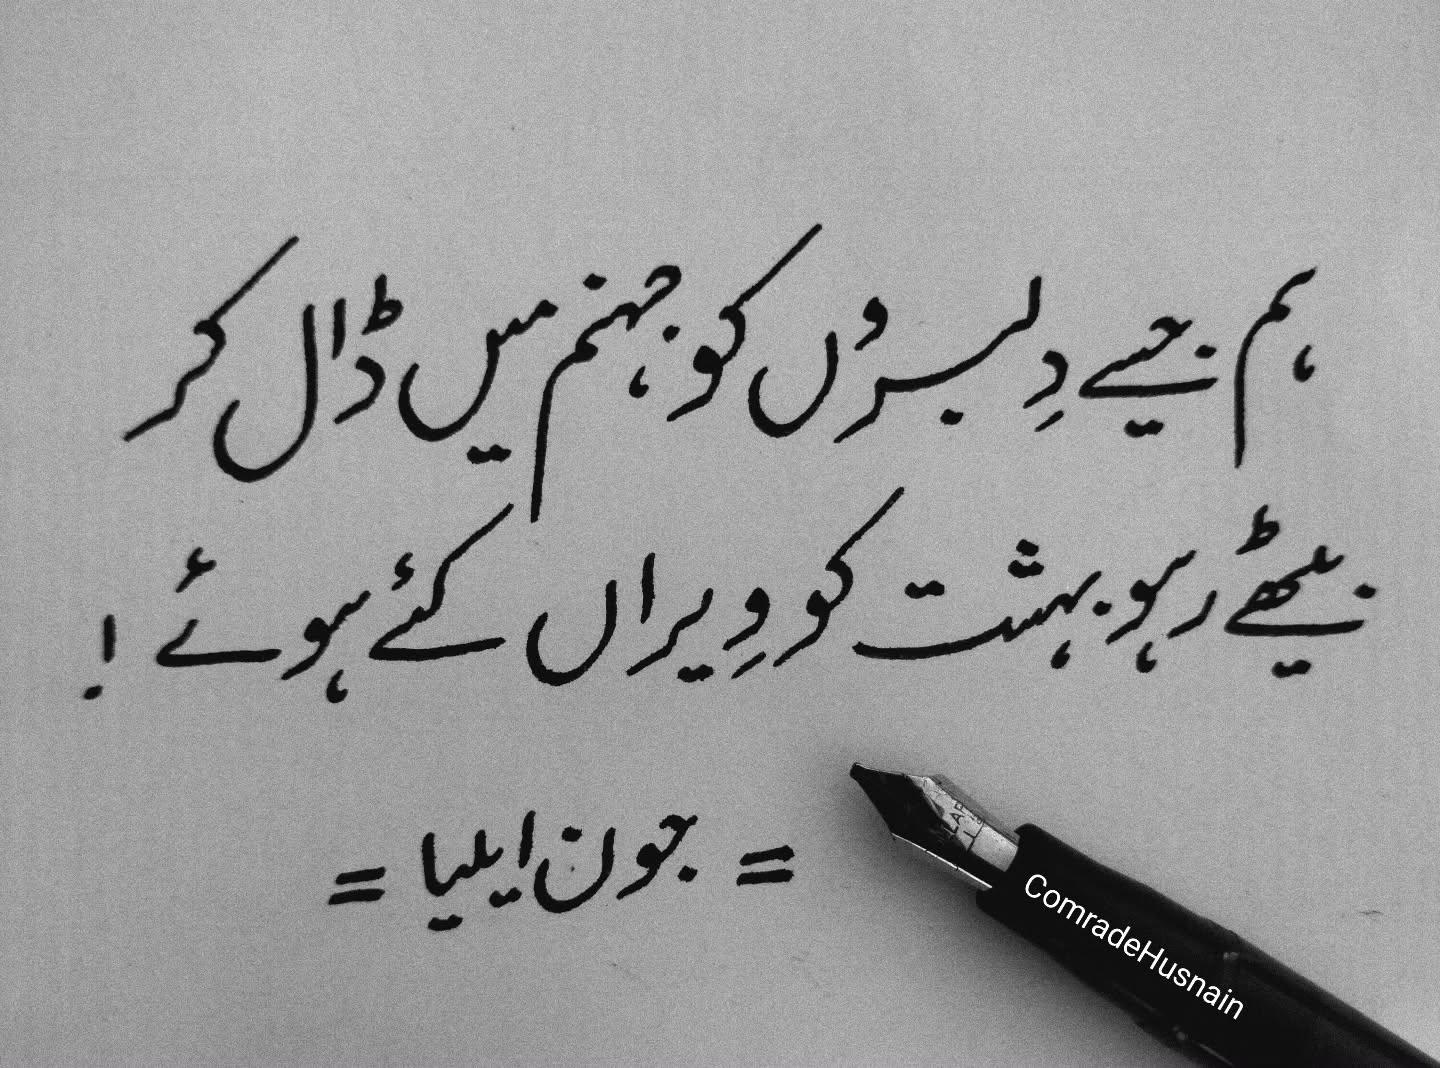 ہم جیسے دِلبروں کو جہنم میں ڈال کر
بیٹھے رہو بہشت کو وِیراں کئے ہوئے !
= جون ایلیا =
ComradeHusnain